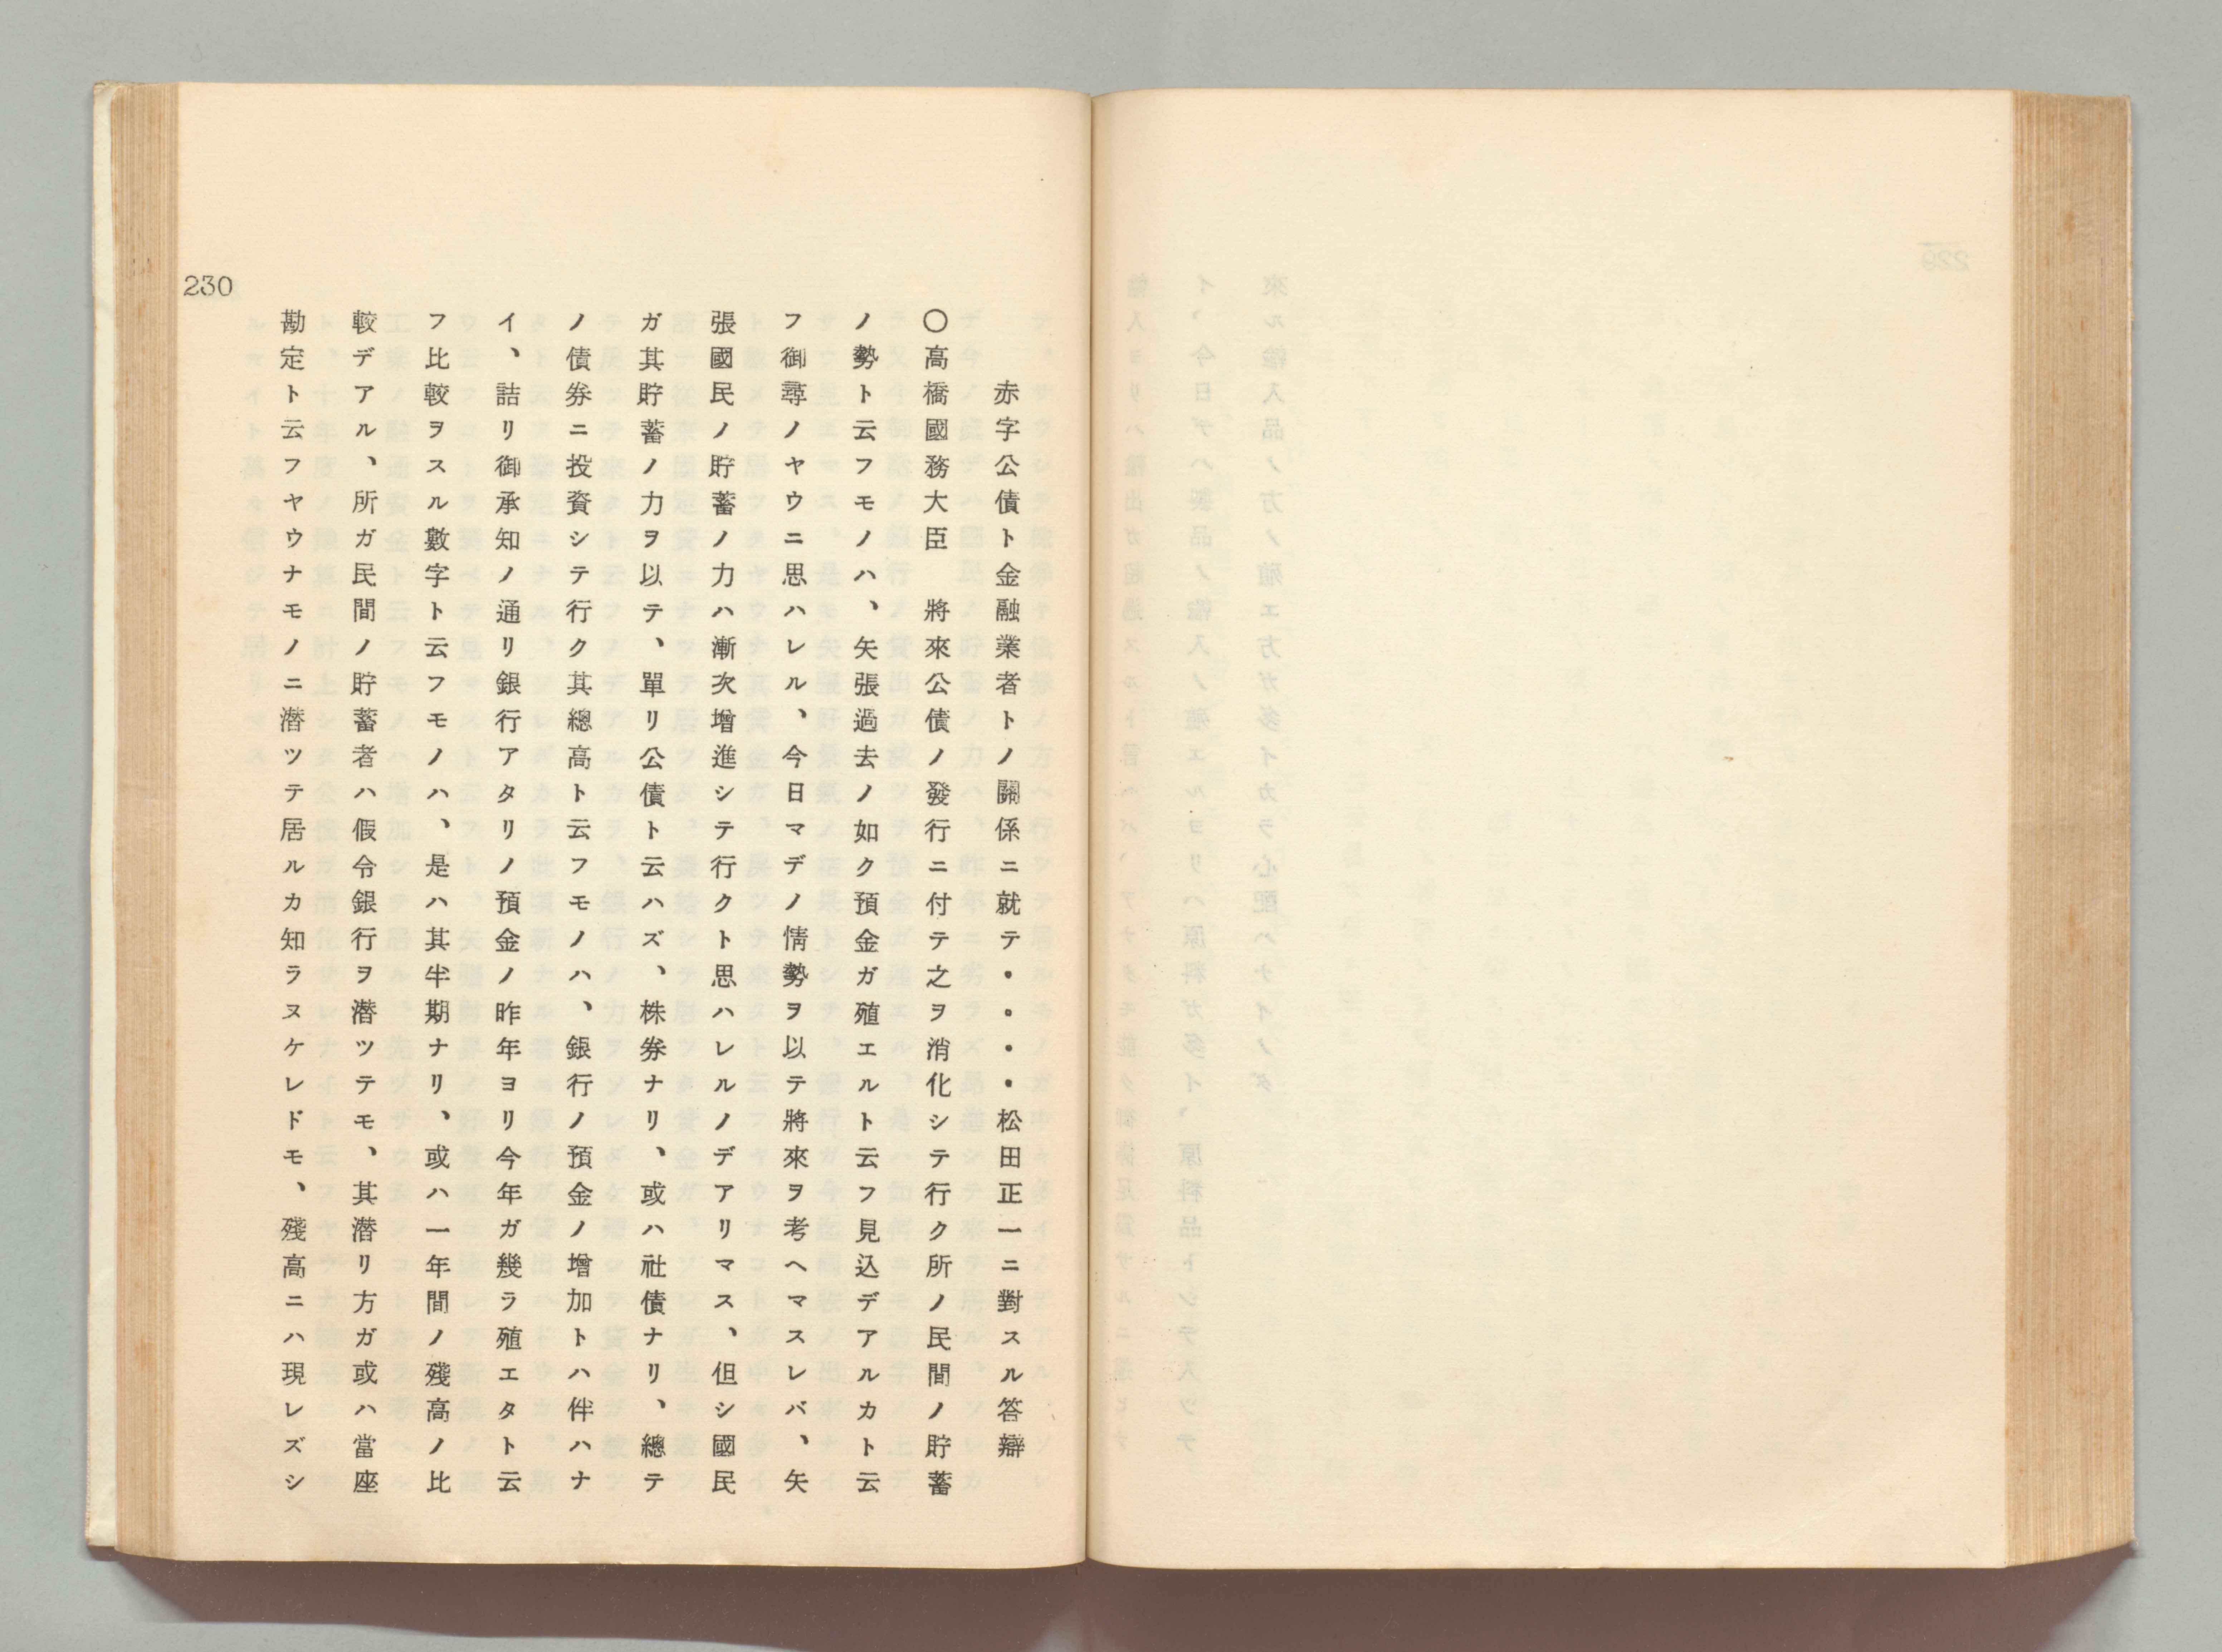 赤字公債ト金融業者トノ關係ニ就テ・・・・松田正一ニ對スル答辯
〇高橋國務大臣　將來公債ノ發行ニ付テ之ヲ消化シテ行ク所ノ民間ノ貯蓄
ノ勢ト云フモノハ、矢張過去ノ如ク預金ガ殖エルト云フ見込デアルカト云
フ御尋ノヤウニ思ハレル、今日マデノ情勢ヲ以テ將來ヲ考ヘマスレバ、矢
張國民ノ貯蓄ノ力ハ漸次增進シテ行クト思ハレルノデアリマス、但シ國民
ガ其貯蓄ノ力ヲ以テ、單リ公債ト云ハズ、株券ナリ、或ハ社債ナリ、總テ
ノ債券ニ投資シテ行ク其總高ト云フモノハ、銀行ノ預金ノ增加トハ伴ハナ
イ、詰リ御承知ノ通リ銀行アタリノ預金ノ昨年ヨリ今年ガ幾ラ殖エタト云
フ比較ヲスル數字ト云フモノハ、是ハ其半期ナリ、或ハ一年間ノ殘高ノ比
較デアル、所ガ民間ノ貯蓄者ハ假令銀行ヲ潛ツテモ、其潛リ方ガ或ハ當座
勘定ト云フヤウナモノニ潛ツテ居ルカ知ラヌケレドモ、殘高ニハ現レズシ
230